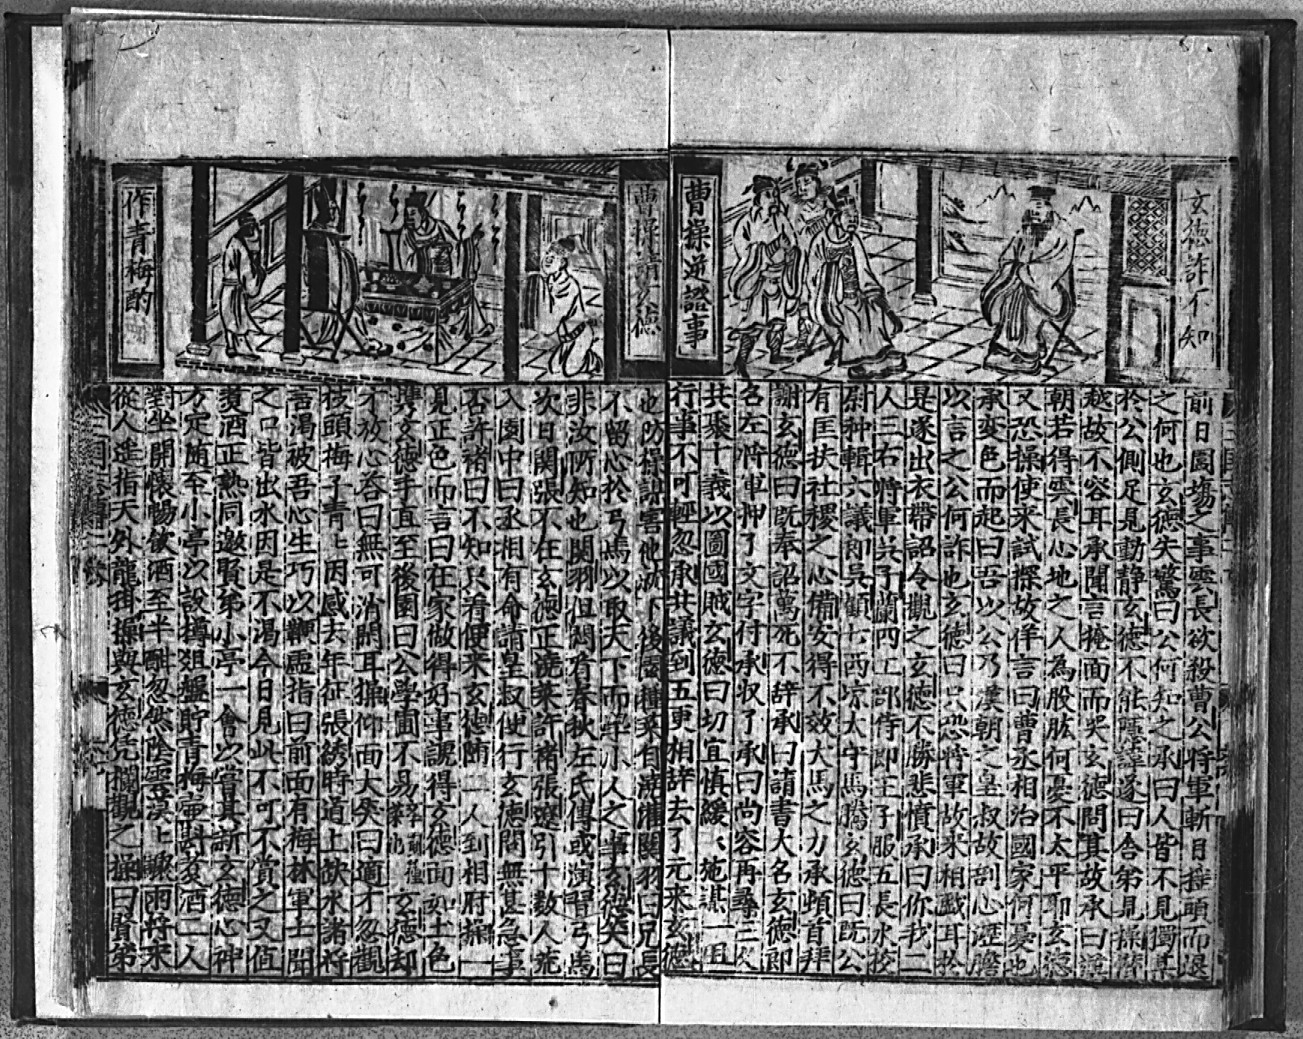 玄德詐不知
曹操逆詔事
前日圍場之事雲長欲殺曹公將軍斬目搖頭而退
之何也玄德失驚曰公何知之承曰人皆不見獨某
於公側足見動靜玄德不能隱諱遂曰舍弟見操僣
越故不容耳承聞言掩面而哭玄德問其故承曰謹
朝若得雲長心地之人為股肱何憂不太平耶玄德
又恐操使來試探故佯言曰曹丞相治國家何憂也
承变色而起曰吾以公乃漢朝之皇叔故剖心瀝膽
以言之公何詐也玄德曰只恐將軍故來相戲耳於
是遂出衣帶詔令觀之玄德不勝悲憤承曰你我二
人三右將軍吳子蘭四工部侍郎王子服五長水校
尉种輯六議郎吳碩七西凉太守馬騰玄德曰既公
有匡扶社稷之心備安得不效犬馬之力承頓首拜
謝玄德曰既奉詔萬死不辞承曰請書大名玄德即
名左將軍押了文字付承收了承曰尚容再尋三人
共聚十義以圖國賊玄德曰切宜慎緩〻施謀一旦
行事不可輕忽承共議到五更相辞去了元來玄德
曹操請玄德
作青梅酌
也防操謀害他就下後園種菜自澆灌関羽曰兄長
不留心於弓馬以取天下而学小人之事玄德笑曰
非汝所知也関羽但閑看春秋左氏傳或演習弓馬
次日関張不在玄德正澆菜許褚張遼引十数人荒
入園中曰丞相有命請皇叔便行玄德問無甚急事
否許褚曰不知只着便來玄德随二人到相府操一
見正色而言曰在家做得好事諕得玄德面如土色
携玄德手直至後園曰公學圃不易 玄德却
才放心答曰無可消閑耳操仰面大笑曰適才忽觀
枝頭梅子青〻因感去年征張綉時道上欽水諸将
言渴被吾心生巧以鞭虛指曰前面有梅林軍士聞
之口皆出水因是不渴今日見此不可不賞之又值
煑酒正熟同邀賢弟小亭一會以賞其新玄德心神
方定随至小亭以設樽俎盤貯青梅壷斟煑酒二人
對坐開懷暢飲酒至半酣忽然陰雲漠〻驟雨將來
從人遙指天外龍掛操與玄德凭欄觀之操曰賢弟